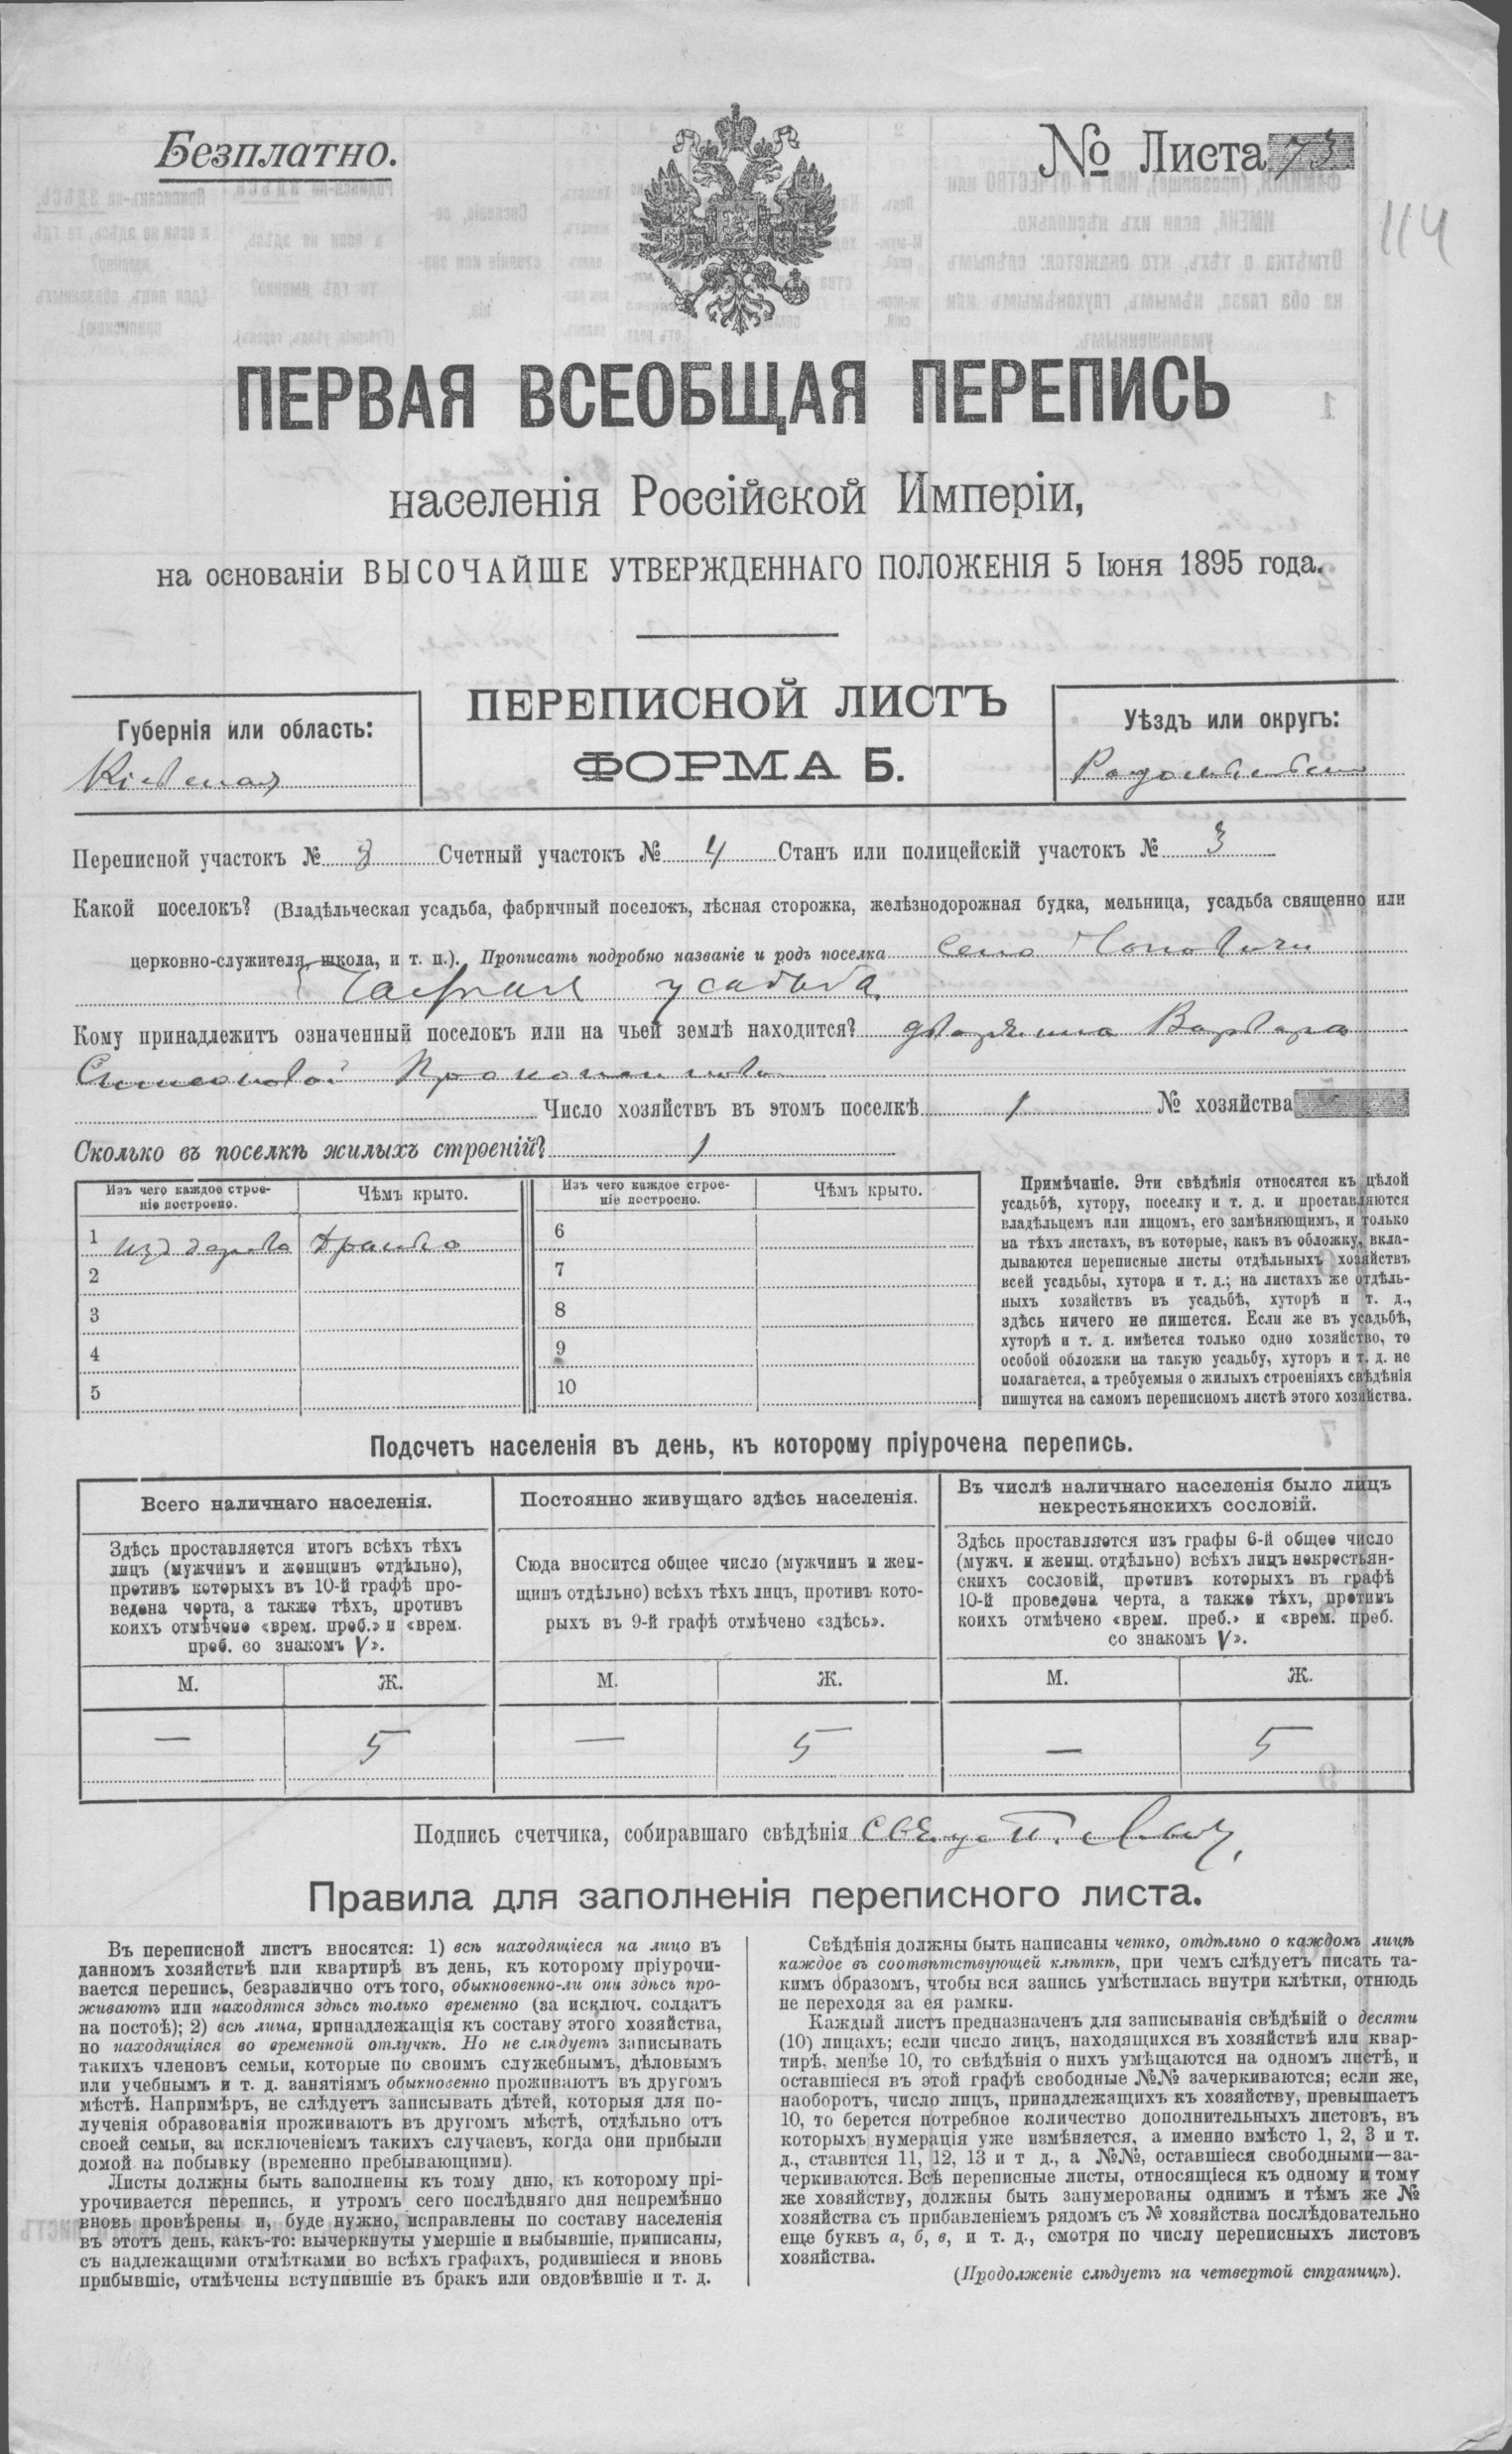 Безплатно.
№ Листа 73
114
ПЕРВАЯ ВСЕОБЩАЯ ПЕРЕПИСЬ
населенія Россійской Имперіи,
на основаніи ВЫСОЧАЙШЕ УТВЕРЖДЕННАГО ПОЛОЖЕНІЯ 5 Іюня 1895 года.
ПЕРЕПИСНОЙ ЛИСТЪ
ФОРМА Б.
Губернія или область:
Кіевская
Уѣздъ или округъ:
Переписной участокъ № 3 Счетный участокъ № 4 Станъ или полицейскій участокъ № 3
Какой поселокъ? (Владѣльческая усадьба, фабричный поселокъ, лѣсная сторожка, желѣзнодорожная будка, мельница, усадьба священно или
церковно-служителя, школа, и т. п.). Прописать подробно названіе и родъ поселка село
усадьба.
Кому принадлежитъ означенный поселокъ или на чьей землѣ находится? Варвара
Число хозяйствъ въ этомъ поселкѣ 1 № хозяйства
Сколько въ поселкѣ жилыхъ строеній? 1
Изъ чего каждое строе-
ніе построено.
Чѣмъ крыто.
Изъ чего каждое строе-
ніе построено.
Чѣмъ крыто.
1 изъ дерева 6
2 7
3 8
4 9
5 10
Примѣчаніе. Эти свѣдѣнія относятся къ цѣлой
усадьбѣ, хутору, поселку и т. д. и проставляются
владѣльцемъ или лицомъ, его замѣняющимъ, и только
на тѣхъ листахъ, въ которые, какъ въ обложку, вкла-
дываются переписные листы отдѣльныхъ хозяйствъ
всей усадьбы, хутора и т. д.; на листахъ же отдѣль-
ныхъ хозяйствъ въ усадьбѣ, хуторѣ и т. д.,
здѣсь ничего не пишется. Если же въ усадьбѣ,
хуторѣ и т. д. имѣется только одно хозяйство, то
особой обложки на такую усадьбу, хуторъ и т. д. не
полагается, а требуемыя о жилыхъ строеніяхъ свѣдѣнія
пишутся на самомъ переписномъ листѣ этого хозяйства.
Подсчетъ населенія въ день, къ которому пріурочена перепись.
Всего наличнаго населенія.
Здѣсь проставляется итогъ всѣхъ тѣхъ
лицъ (мужчинъ и женщинъ отдѣльно),
противъ которыхъ въ 10-й графѣ про-
ведена черта, а также тѣхъ, противъ
коихъ отмѣчено «врем. преб.» и «врем.
преб. со знакомъ V».
М. Ж.
— 5
Постоянно живущаго здѣсь населенія.
Сюда вносится общее число (мужчинъ и жен-
щинъ отдѣльно) всѣхъ тѣхъ лицъ, противъ кото-
рыхъ въ 9-й графѣ отмѣчено «здѣсь».
М. Ж.
— 5
Въ числѣ наличнаго населенія было лицъ
некрестьянскихъ сословій.
Здѣсь проставляется изъ графы 6-й общее число
(мужч. и женщ. отдѣльно) всѣхъ лицъ некрестьян-
скихъ сословій, противъ которыхъ въ графѣ
10-й проведена черта, а также тѣхъ, противъ
коихъ отмѣчено «врем. преб.» и «врем. преб.
со знакомъ V».
М. Ж.
— 5
Подпись счетчика, собиравшаго свѣдѣнія
Правила для заполненія переписного листа.
Въ переписной листъ вносятся: 1) всѣ находящіеся на лицо въ
данномъ хозяйствѣ или квартирѣ въ день, къ которому пріурочи-
вается перепись, безразлично отъ того, обыкновенно-ли они здѣсь про-
живаютъ или находятся здѣсь только временно (за исключ. солдатъ
на постоѣ); 2) всѣ лица, принадлежащія къ составу этого хозяйства,
но находящіяся во временной отлучкѣ. Но не слѣдуетъ записывать
такихъ членовъ семьи, которые по своимъ служебнымъ, дѣловымъ
или учебнымъ и т. д. занятіямъ обыкновенно проживаютъ въ другомъ
мѣстѣ. Напримѣръ, не слѣдуетъ записывать дѣтей, которыя для по-
лученія образованія проживаютъ въ другомъ мѣстѣ, отдѣльно отъ
своей семьи, за исключеніемъ такихъ случаевъ, когда они прибыли
домой на побывку (временно пребывающими).
Листы должны быть заполнены къ тому дню, къ которому прі-
урочивается перепись, и утромъ сего послѣдняго дня непремѣнно
вновь провѣрены и, буде нужно, исправлены по составу населенія
въ этотъ день, какъ-то: вычеркнуты умершіе и выбывшіе, приписаны,
съ надлежащими отмѣтками во всѣхъ графахъ, родившіеся и вновь
прибывшіе, отмѣчены вступившіе въ бракъ или овдовѣвшіе и т. д.
Свѣдѣнія должны быть написаны четко, отдѣльно о каждомъ лицѣ
каждое въ соотвѣтствующей клѣткѣ, при чемъ слѣдуетъ писать та-
кимъ образомъ, чтобы вся запись умѣстилась внутри клѣтки, отнюдь
не переходя за ея рамки.
Каждый листъ предназначенъ для записыванія свѣдѣній о десяти
(10) лицахъ; если число лицъ, находящихся въ хозяйствѣ или квар-
тирѣ, менѣе 10, то свѣдѣнія о нихъ умѣщаются на одномъ листѣ, и
оставшіеся въ этой графѣ свободные №№ зачеркиваются; если же,
наоборотъ, число лицъ, принадлежащихъ къ хозяйству, превышаетъ
10, то берется потребное количество дополнительныхъ листовъ, въ
которыхъ нумерація уже измѣняется, а именно вмѣсто 1, 2, 3 и т.
д., ставится 11, 12, 13 и т д., а №№, оставшіеся свободными—за-
черкиваются. Всѣ переписные листы, относящіеся къ одному и тому
же хозяйству, должны быть занумерованы однимъ и тѣмъ же №
хозяйства съ прибавленіемъ рядомъ съ № хозяйства послѣдовательно
еще буквъ а, б, в, и т. д., смотря по числу переписныхъ листовъ
хозяйства.
(Продолженіе слѣдуетъ на четвертой страницѣ).